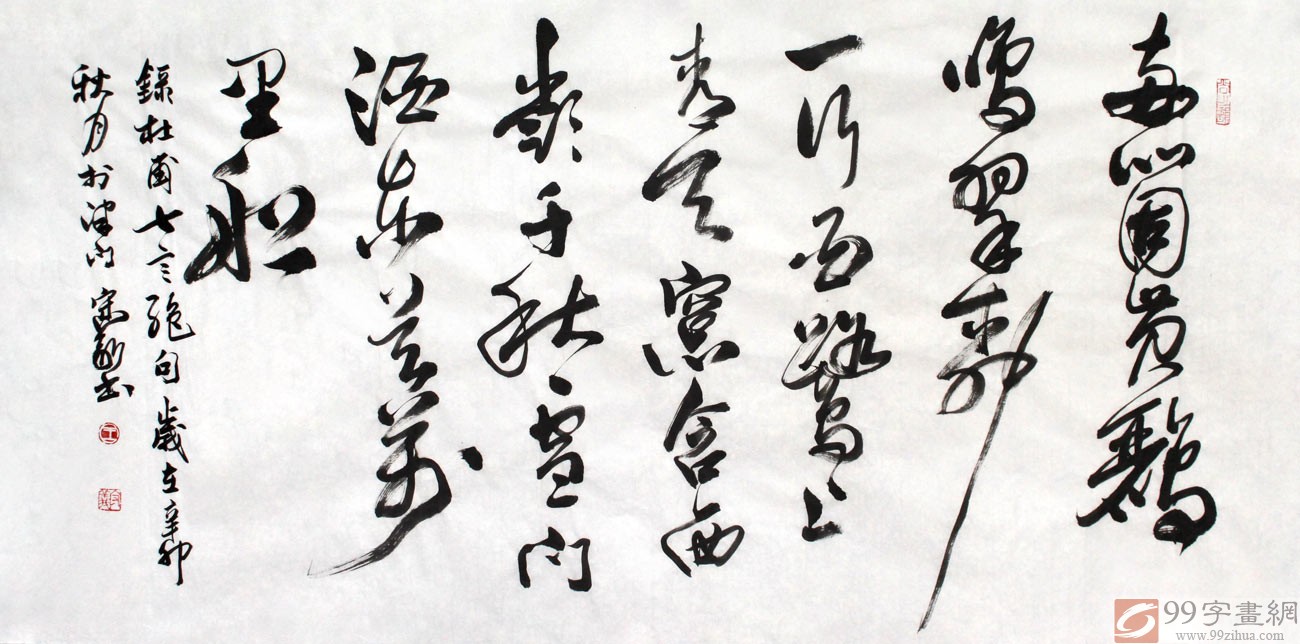 兩個黄鸝
鳴翠柳
一行白鷺上
青天窗含西
嶺千秋雪門
泊東吳萬
里船
錄杜甫七言絕句歲在辛卯
秋月於津門 書
99字畫網
www.99zihua.com